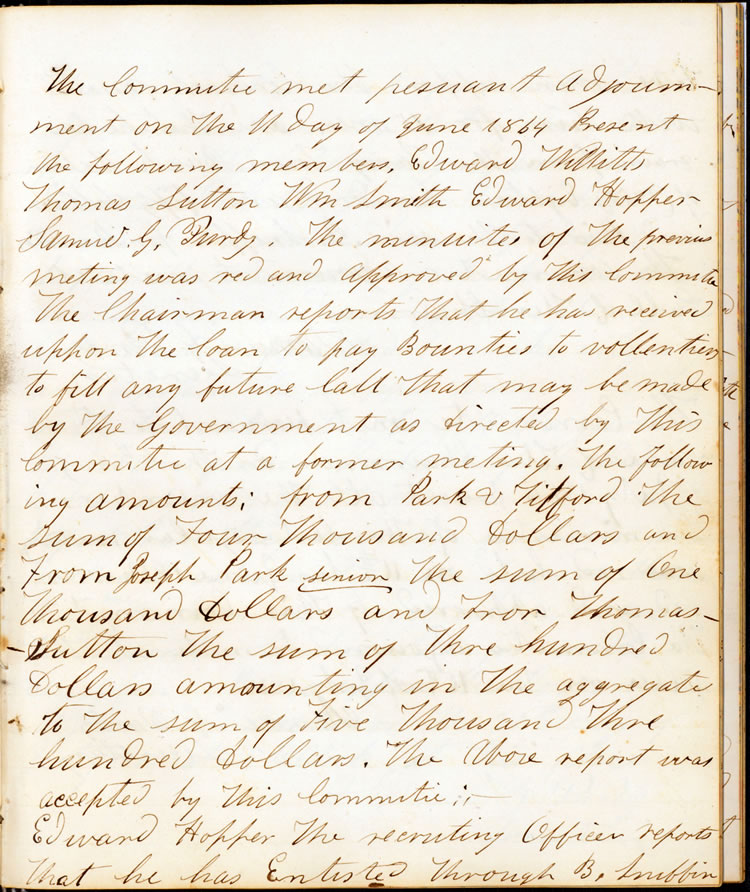 The Committie met pesuant Adjourn-
ment on The 11 Day of June 1864 Present
the following members, Edward Willitts
Thomas Sutton Wm Smith Edward Hopper
Samuel G. Purdy. The minuites of The previus
meting was red and Approved by This Committie
The Chairman reports That he has received
uppon The loan to pay Bounties to vollentiers
to fill any future Call That may be made
by The Government as Directed by This
Committie at a former meting. The follow
ing amounts; from Park & Tilford The
sum of Four Thousand Dollars and
From Joseph Park senior The sum of One
Thousand Dollars and From Thomas-
Sutton The sum of Thre hundred
Dollars amounting in The aggregate
to The sum of Five Thousand Thre
hundred Dollars. The Above report was
accepted by This Committie;-
Edward Hopper The recruting Officer reports
That he has Enlisted Through B.